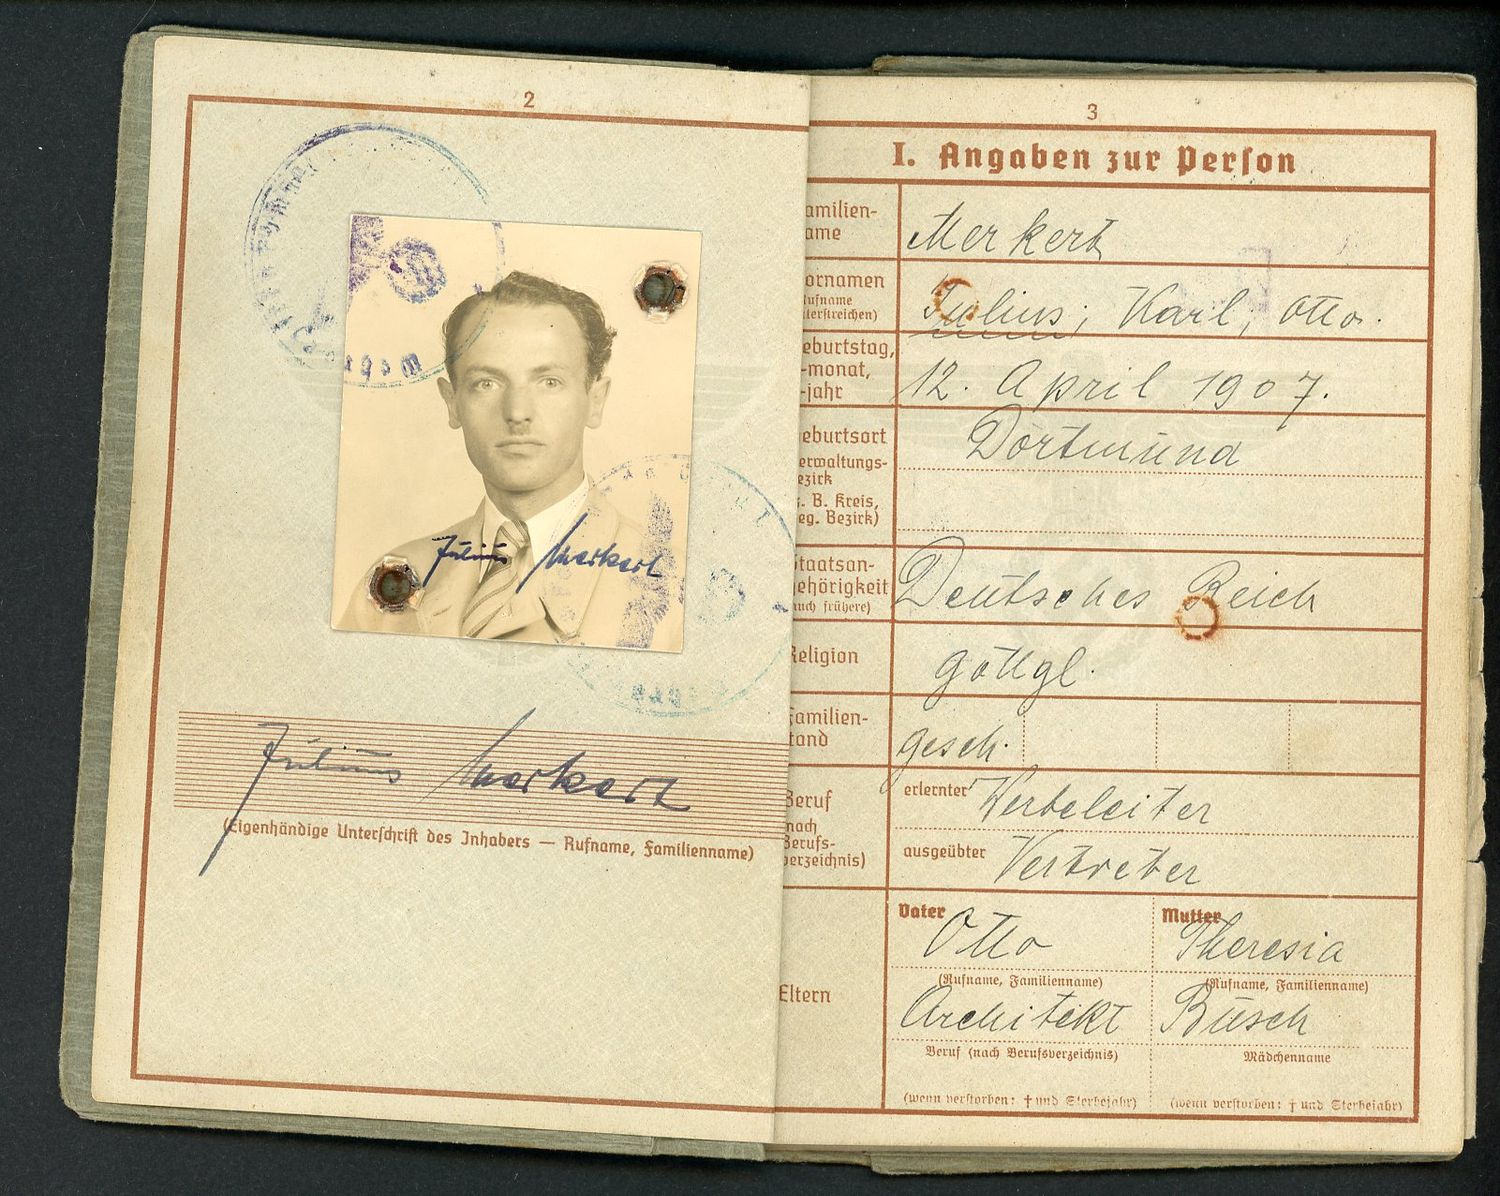 2
Julius Merkert
Julius Merkert
(Eigenhändige Unterschrift des Inhabers — Rufname, Familienname)
3
I. Angaben zur Person
amilien-
ame
Merkert
ornamen
Rufname
terstreichen)
Julius, Karl, Otto.
eburtstag,
-monat,
-jahr
12. April 1907.
eburtsort
erwaltungs-
ezirk
z. B. Kreis,
eg. Bezirk)
Dortmund
Staatsan-
gehörigkeit
auch frühere)
Deutsches Reich
Religion
gottgl.
Familien-
stand
gesch.
Beruf
nach
Berufs-
verzeichnis)
erlernter Werbeleiter
ausgeübter Vertreter
Eltern
Vater Mutter
Otto Theresia
(Rufname, Familienname) (Rufname, Familienname)
Architekt Busch
Beruf (nach Berufsverzeichnis) Mädchenname
(wenn verstorben: † und Sterbejahr) (wenn verstorben: † und Sterbejahr)